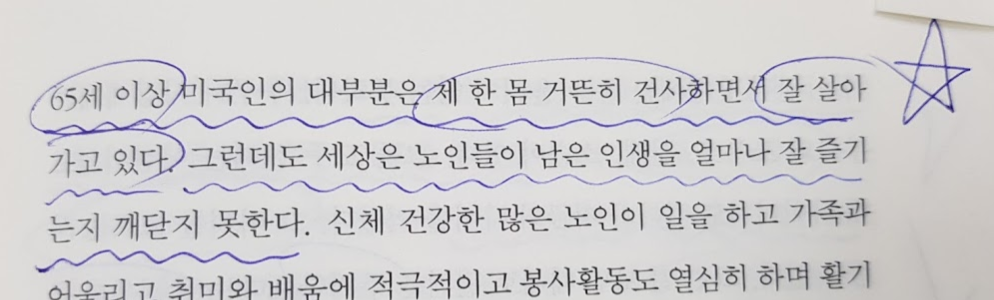 65세 이상 미국인의 대부분은 제 한 몸 거뜬히 건사하면서 잘 살아
가고 있다. 그런데도 세상은 노인들이 남은 인생을 얼마나 잘 즐기
는지 깨닫지 못한다. 신체 건강한 많은 노인이 일을 하고 가족과
어울리고 취미와 배움에 적극적이고 봉사활동도 열심히 하며 활기